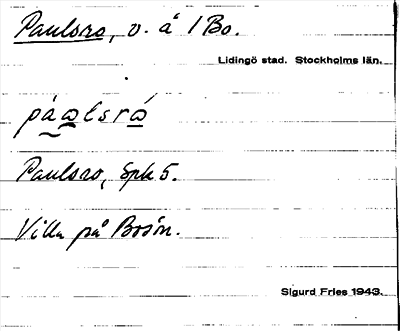 Paulsro, v. å 1 Bo.
Lidingö stad. Stockholms län.
Paulsro, Spk 5.
Villa på Bosön.
Sigurd Fries 1943.